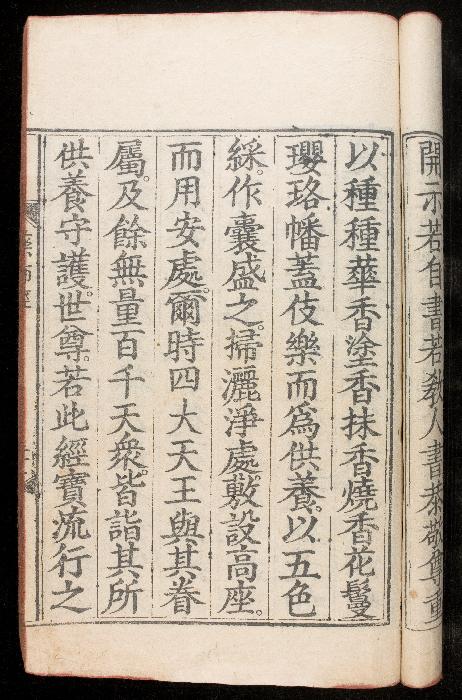 開示若自書若敎人書恭敬尊重
以種種華香塗香抹香燒香花鬘
瓔珞幡蓋伎樂而爲供養。以五色
綵。作囊盛之。掃灑淨處。敷設高座。
而用安處。爾時四大天王與其眷
屬。及餘無量百千天衆。皆詣其所
供養守護世尊。若此經寶流行之